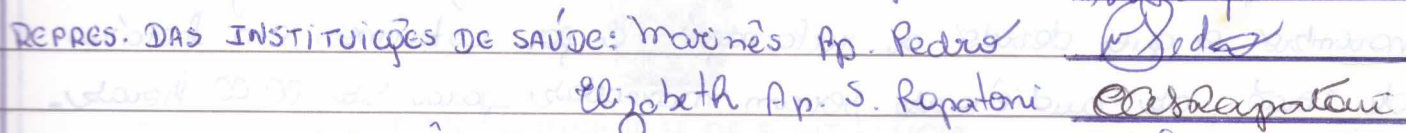 REPRES. DAS INSTITUIÇÕES DE SAÚDE: Marinês Ap. Pedro
Elizabeth Ap. S. Rapatoni easRapatoni